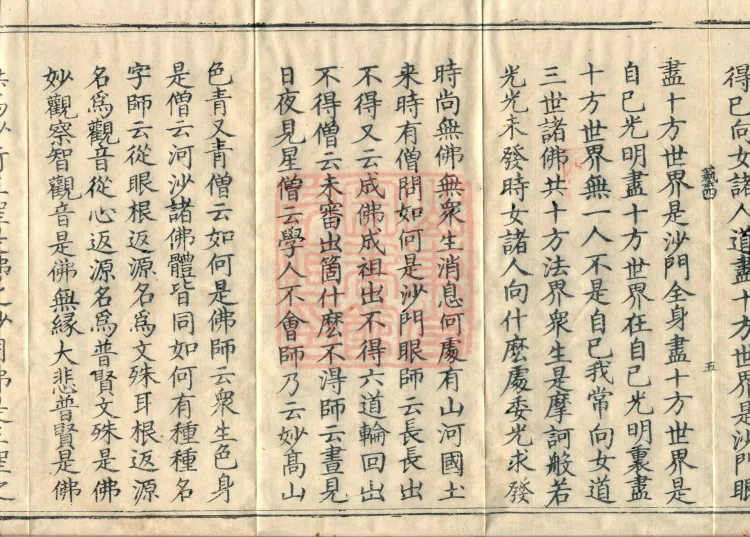 得已向女諸人道盡十方世界是沙門眼
藝四
五
盡十方世界是沙門全身盡十方世界是
自己光明盡十方世界在自己光明裏盡
十方世界無一人不是自己我常向女道
三世諸佛共十方法界衆生是摩訶般若
光光未發時女諸人向什麽處委光求發
時尚無佛無衆生消息何處有山河國土
来時有僧問如何是沙門眼師云長長出
不得又云成佛成祖出不得六道輪回出
不得僧云未審出箇什麽不得師云晝見
日夜見星僧云學人不會師乃云妙髙山
色青又青僧云如何是佛師云衆生色身
是僧云河沙諸佛體皆同如何有種種名
字師云從眼根返源名爲文殊耳根返源
名爲觀音從心返源名爲普賢文殊是佛
妙觀察智觀音是佛無縁大悲普賢是佛